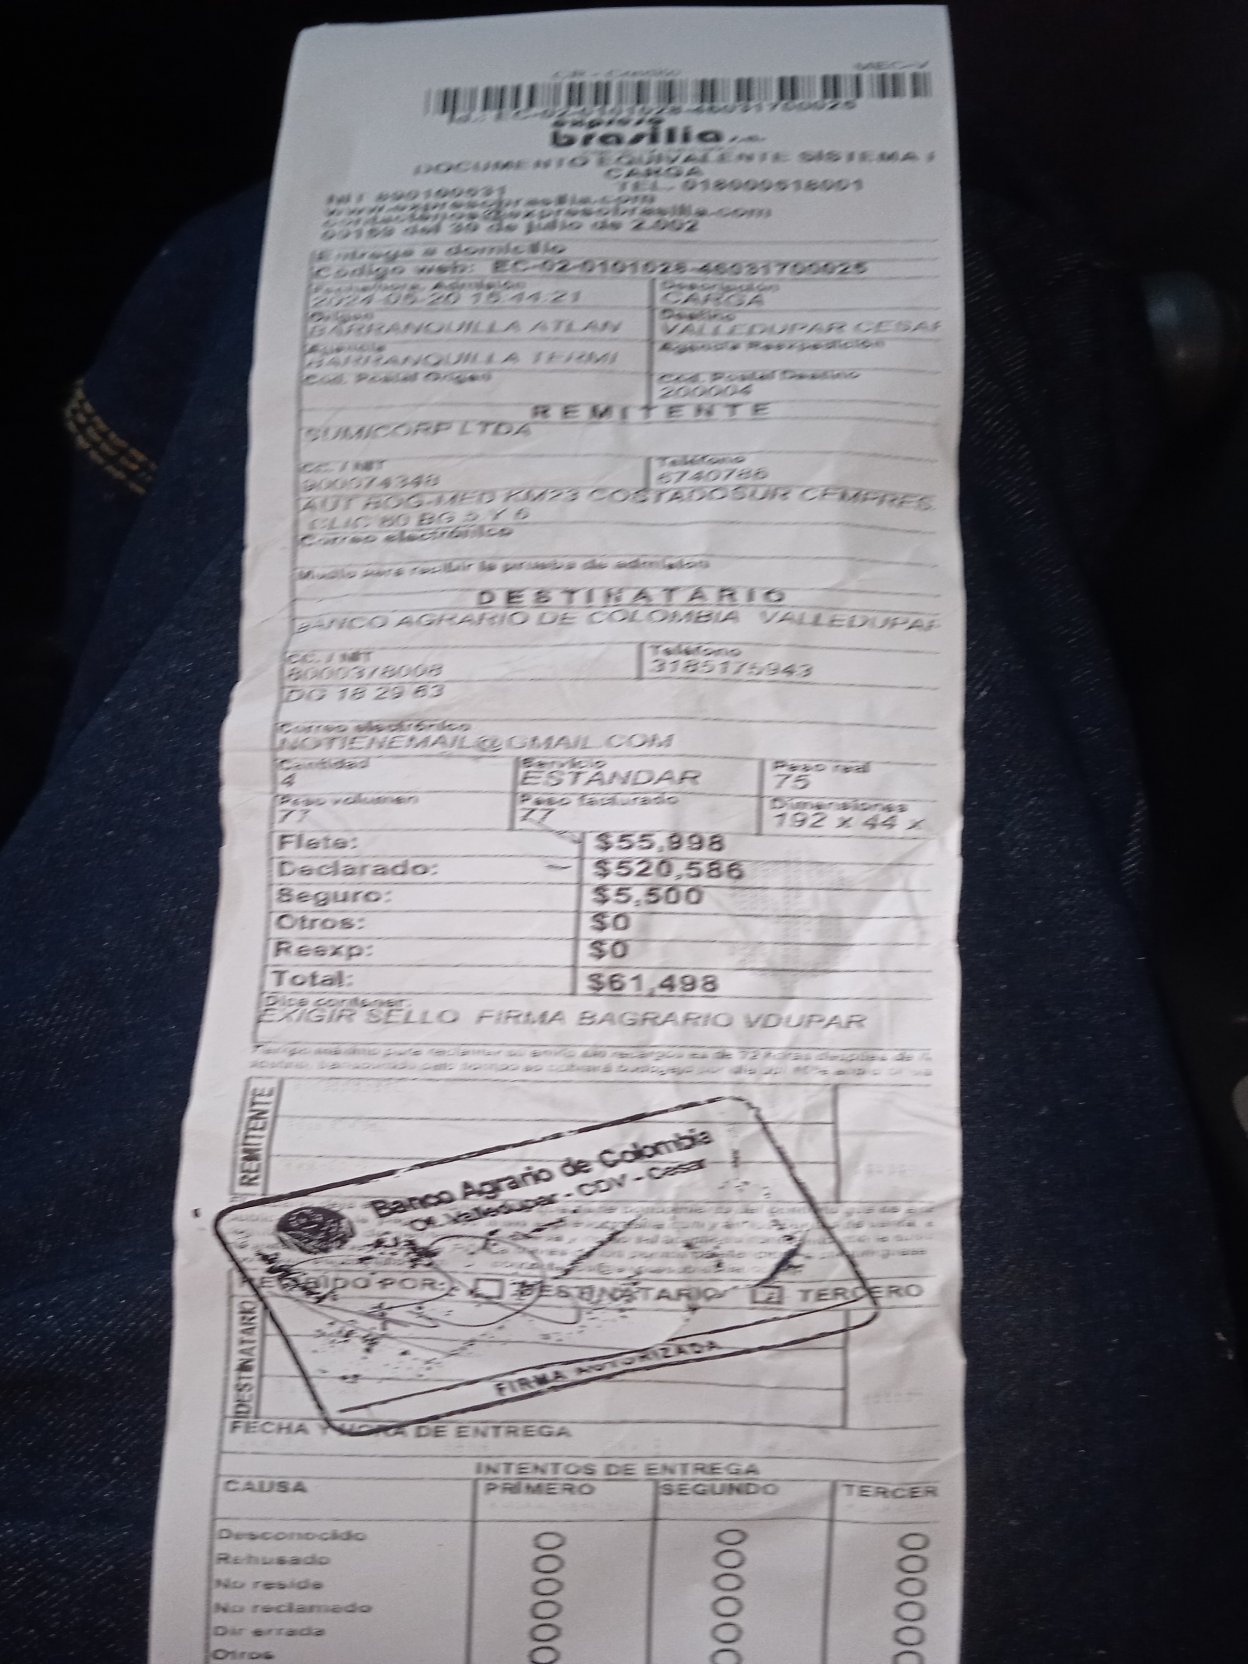 CR - Credito MEC-V
Id.: EC-02-0101028-46031700025
expreso
brasilia s.a.
DOCUMENTO EQUIVALENTE SISTEMA
CARGA
NIT 890100531 TEL. 018000518001
www.expresobrasilia.com
contactenos@expresobrasilia.com
del 30 de julio de 2.002
Entrega a domicilio
Código web: EC-02-0101028-46031700025
Fecha/hora. Admisión Descripción
2024-06-20 15:44:21 CARGA
Origen Destino
BARRANQUILLA ATLAN VALLEDUPAR CESAR
Agencia Agencia Reexpedición
BARRANQUILLA TERMI
Cod. Postal Origen Cod. Postal Destino
200004
REMITENTE
SUMICORP LTDA
CC. / NIT Teléfono
900074348 6740786
AUT BOG-MED KM23 COSTADOSUR CEMPRES
CLIC 80 BG 5 Y 6
Correo electrónico
Medio para recibir la prueba de admision
DESTINATARIO
BANCO AGRARIO DE COLOMBIA VALLEDUPAR
CC. / NIT Teléfono
8000378008 3185175943
DG 18 29 63
Correo electrónico
NOTIENEMAIL@GMAIL.COM
Cantidad Servicio Peso real
4 ESTANDAR 75
Peso volumen Peso facturado Dimensiones
77 77 192 x 44 x
Flete: $55,998
Declarado: $520,586
Seguro: $5,500
Otros: $0
Reexp: $0
Total: $61,498
Dice contener:
EXIGIR SELLO FIRMA BAGRARIO VDUPAR
REMITENTE
Banco Agrario de Colombia
Of. Valledupar - CDV - Cesar
RECIBIDO POR: DESTINATARIO TERCERO
DESTINATARIO
FIRMA AUTORIZADA
FECHA Y HORA DE ENTREGA
INTENTOS DE ENTREGA
CAUSA PRIMERO SEGUNDO TERCER
Desconocido
Rehusado
No reside
No reclamado
Dir errada
Otros